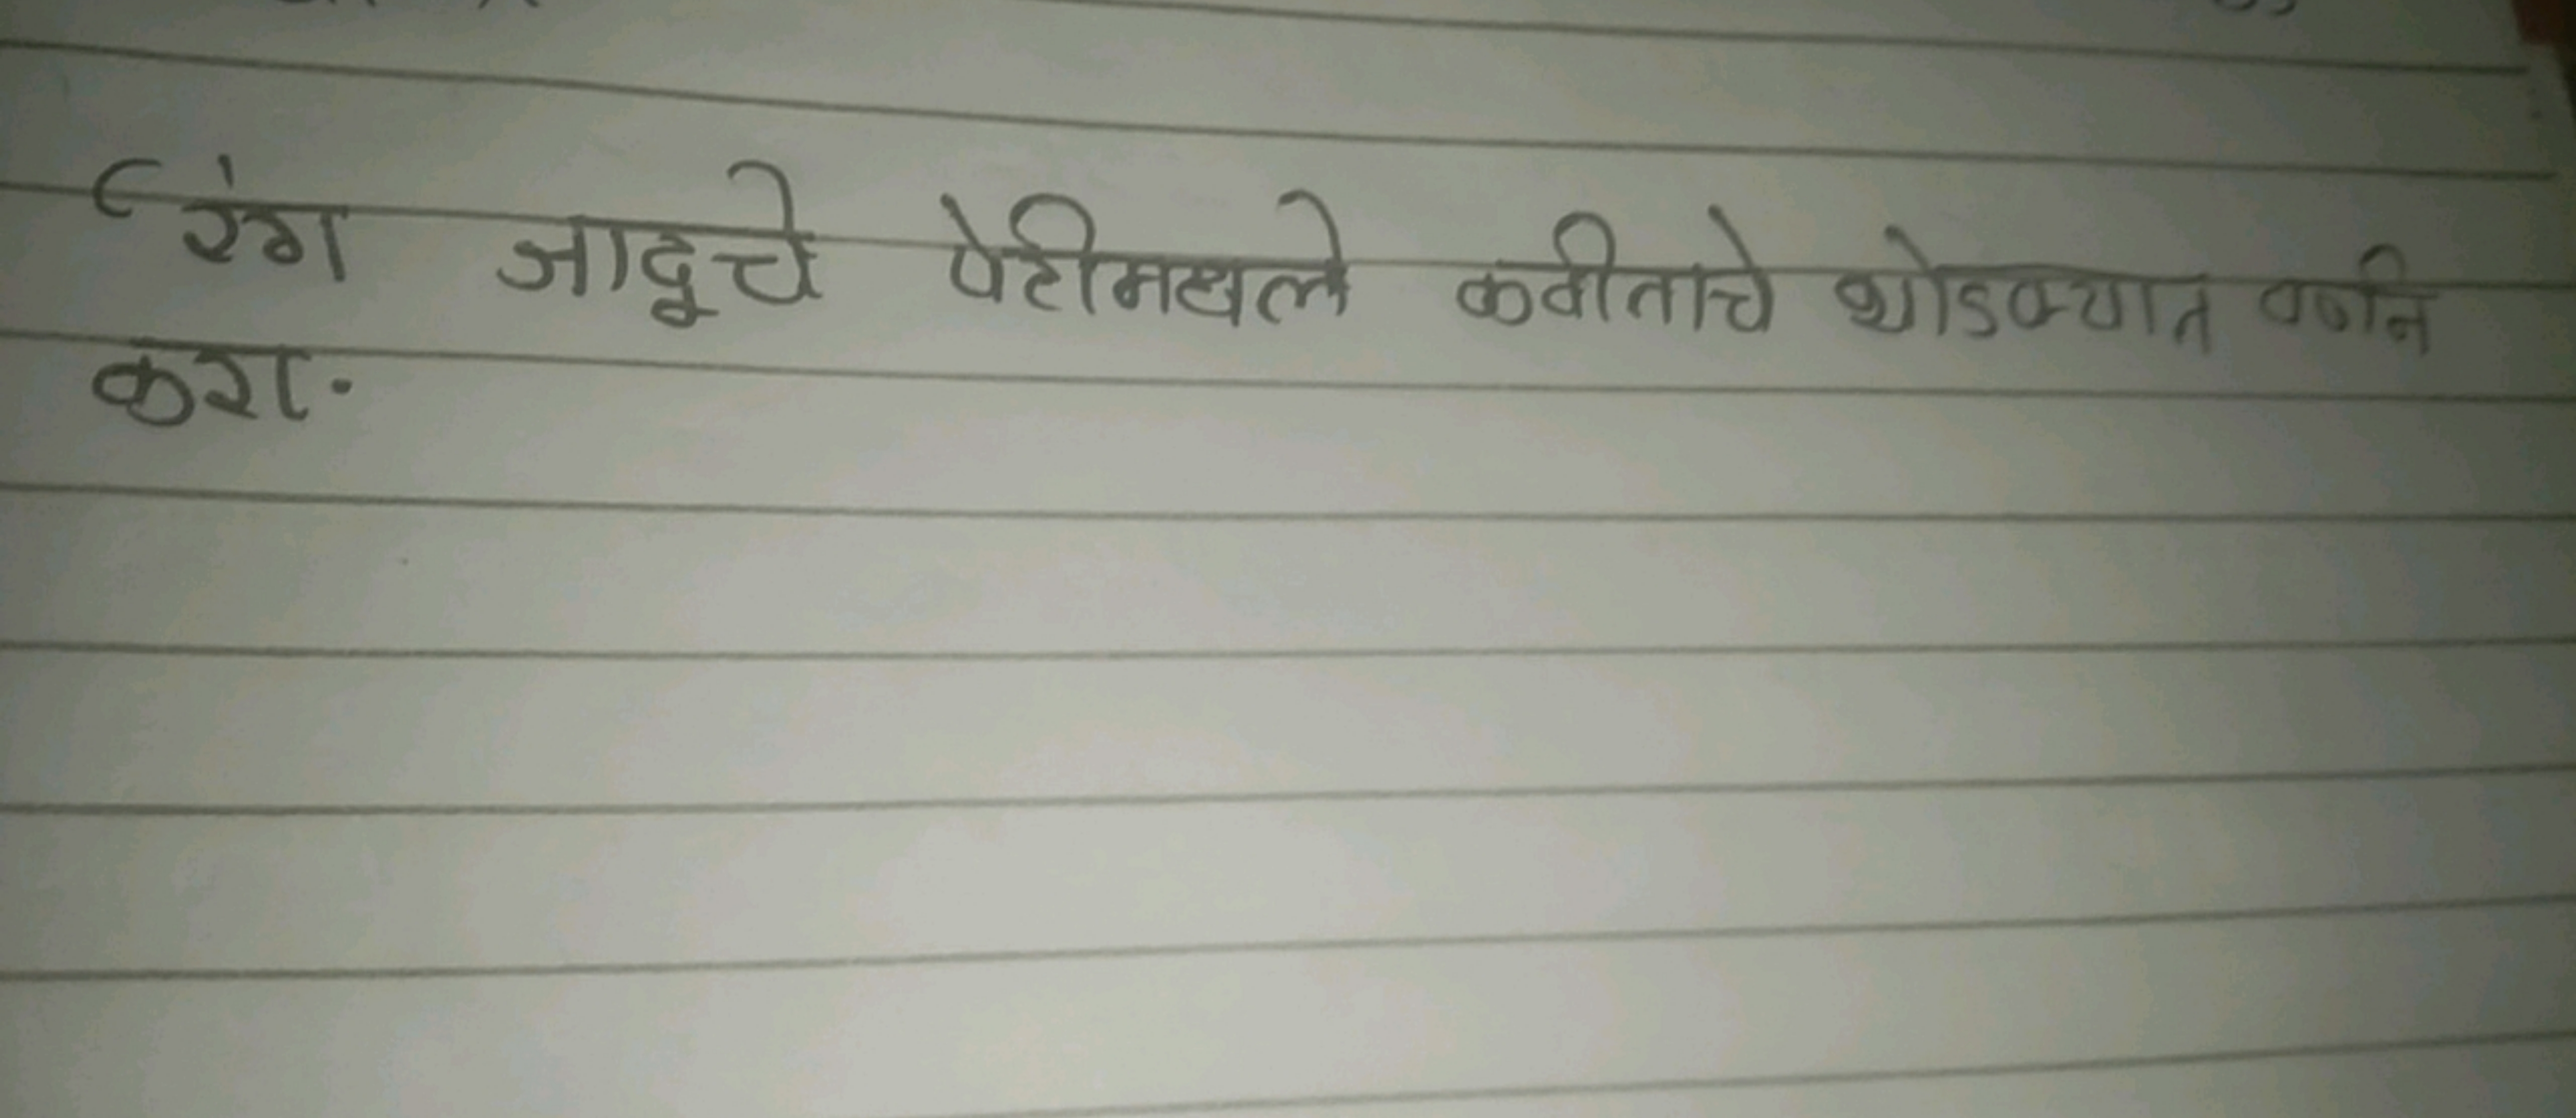 ‘रंग जादूचे पेटीमधले कवीताचे थोडक्यात वर्णन
करा.